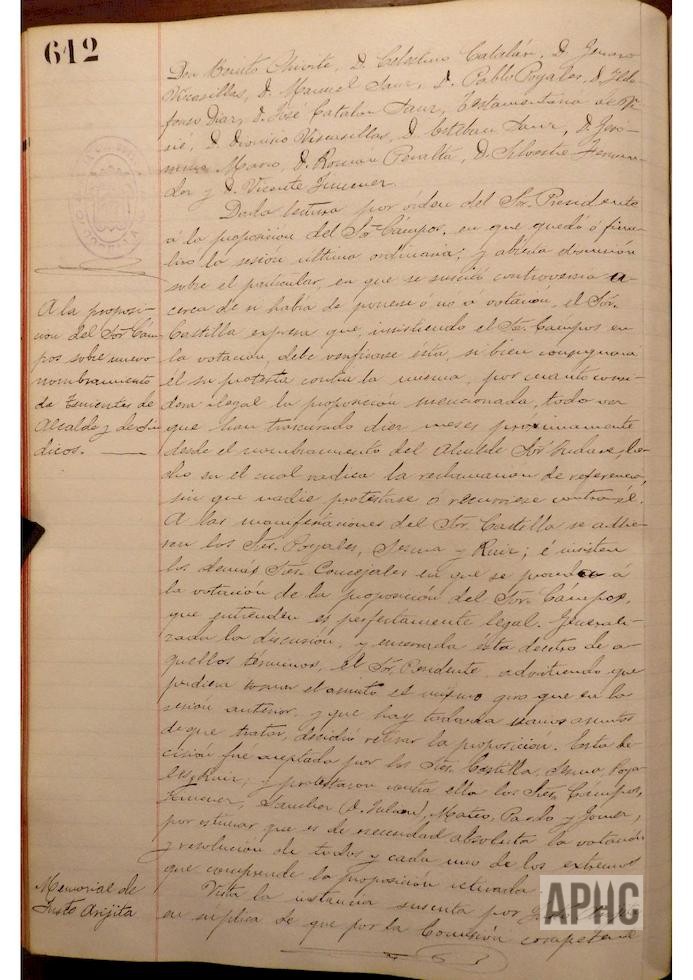 612
Don Benito Chivite, D. Celestino Catalán, D. Jenaro
Vicasillas, D. Manuel Sanz, D. Pablo Royales, D. Ilde-
fonso Diaz, D. José Catalan Sanz, Testamentaria de
D. Dionisio Viscasillas, D. Esteban Sanz, D. Jero-
nimo Marco, D. Roman Peralta, D. Silvestre
y D. Vicente Jimenez
Dada lectura por órden del Sr. Presidente
á la proposicion del Sor. Cámpos, en que quedó ó fina-
lizó la sesion ultima ordinaria; y abierta discusion
sobre el particular, en que se suscitó controversia a-
cerca de si habia de ponerse ó no a votacion, el Sor.
Castilla expresa que, insistiendo el Sor. Cámpos en
la votacion, debe verificarse ésta, si bien consignará
él su protesta contra la misma, por cuanto consi-
dera ilegal la proposicion mencionada, toda vez
que han trascurrido diez meses proximamente
desde el nombramiento del Alcalde Sor. he-
cho en el cual radica la reclamacion de referencia,
sin que nadie protestase ó recurriese contra él.
A las manifestaciones del Sor. Castilla se adhie-
ren los Sres. Royales, Sesma y Ruiz; é insisten
los demás Sres. Concejales en que se proceda á
la votación de la proposición del Sor. Cámpos,
que entienden es perfectamente legal. Generali-
zada la discusión, y encerrada ésta dentro de a-
quellos términos, el Sr. Presidente, advirtiendo que
pudiera tomar el asunto el mismo giro que en la
sesion anterior, y que hay todavia varios asuntos
de que tratar, decidió retirar la proposición. Esta de-
cisión fué aceptada por los Sres. Castilla, Sesma, Roya-
les, Ruiz; y protestaron contra ella los Sres. Cámpos,
Jimenez, Sanchez (D. Julian), Mateo, Pardo y Gomez,
por estimar que es de necesidad absoluta la votación
y resolución de todos y cada uno de los extremos
que comprende la proposición retirada.
Vista la instancia suscrita por Justo
en súplica de que por la Comisión competente
A la proposi-
cion del Sor. Cám-
pos sobre nuevo
nombramiento
de Tenientes de
Alcalde y de Sín-
dicos.
Memorial de
Justo Arijita
APHC